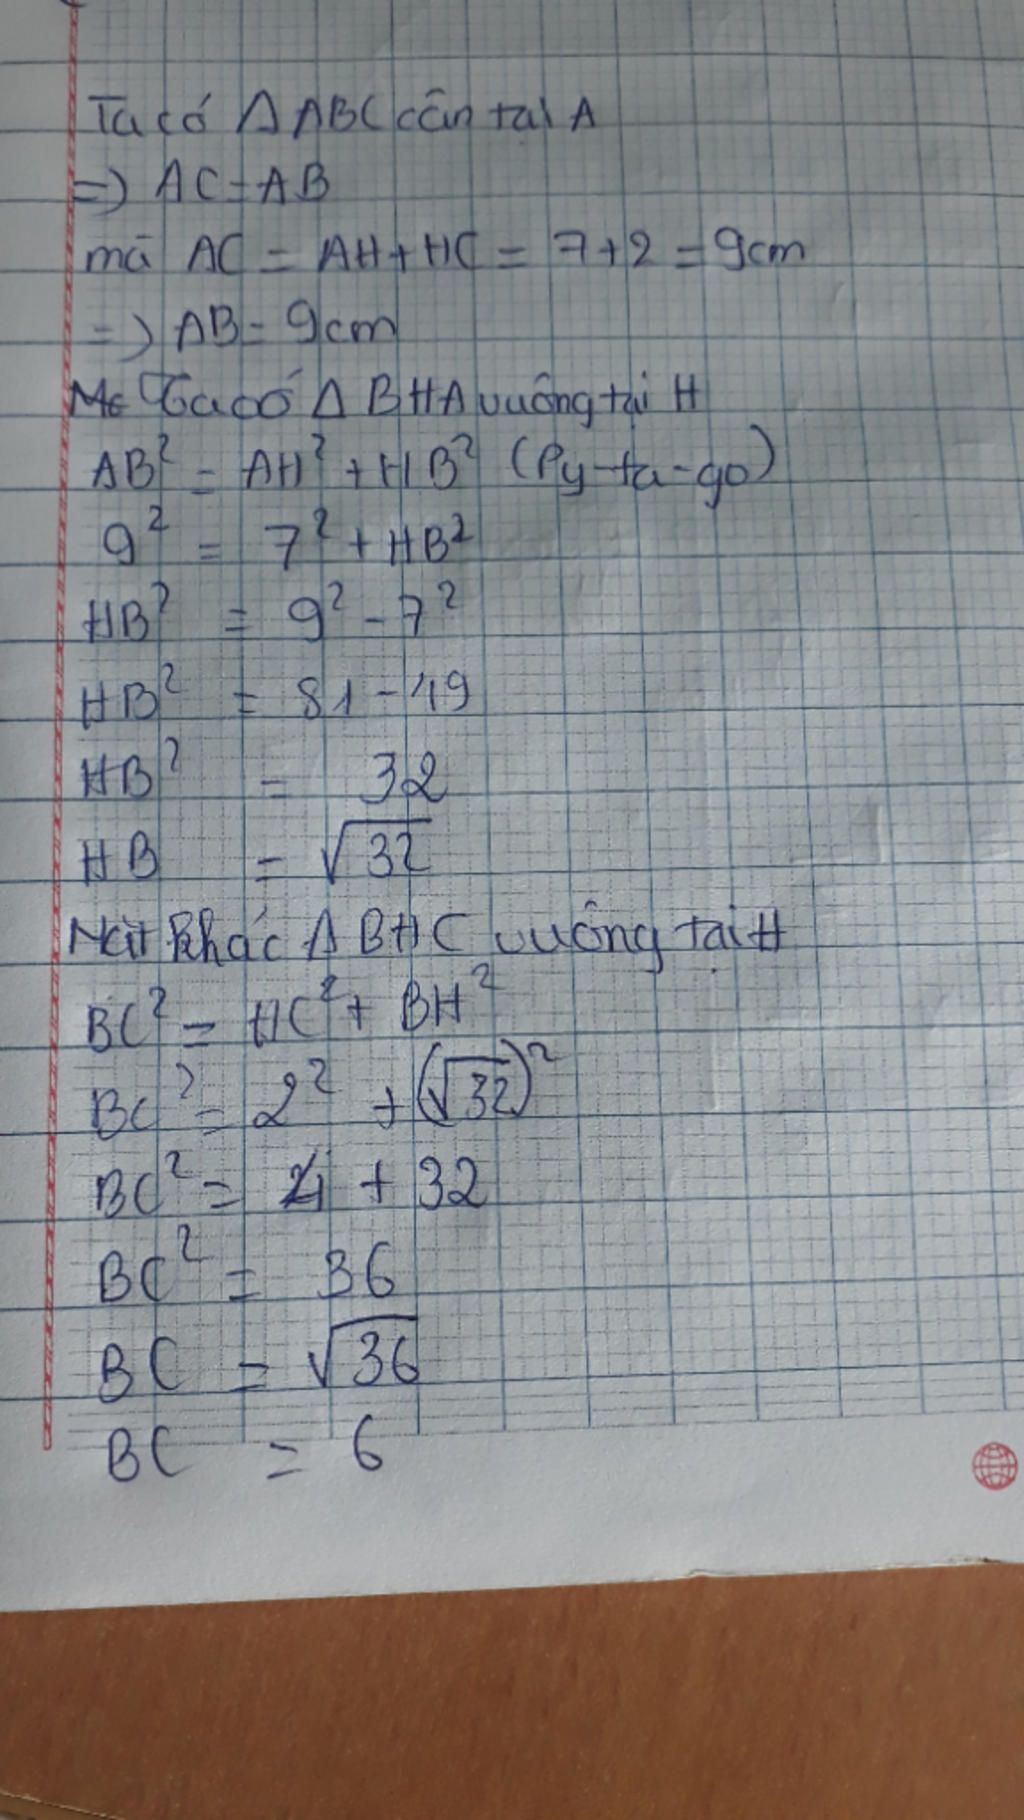 Ta có Δ ABC cân tại A
=> AC = AB
mà AC = AH + HC = 7 + 2 = 9cm
=> AB = 9cm
Ta có Δ BHA vuông tại H
AB² = AH² + HB² (Py-ta-go)
9² = 7² + HB²
HB² = 9² - 7²
HB² = 81 - 49
HB² = 32
HB = √32
Mặt khác Δ BHC vuông tại H
BC² = HC² + BH²
BC² = 2² + (√32)²
BC² = 4 + 32
BC² = 36
BC = √36
BC = 6